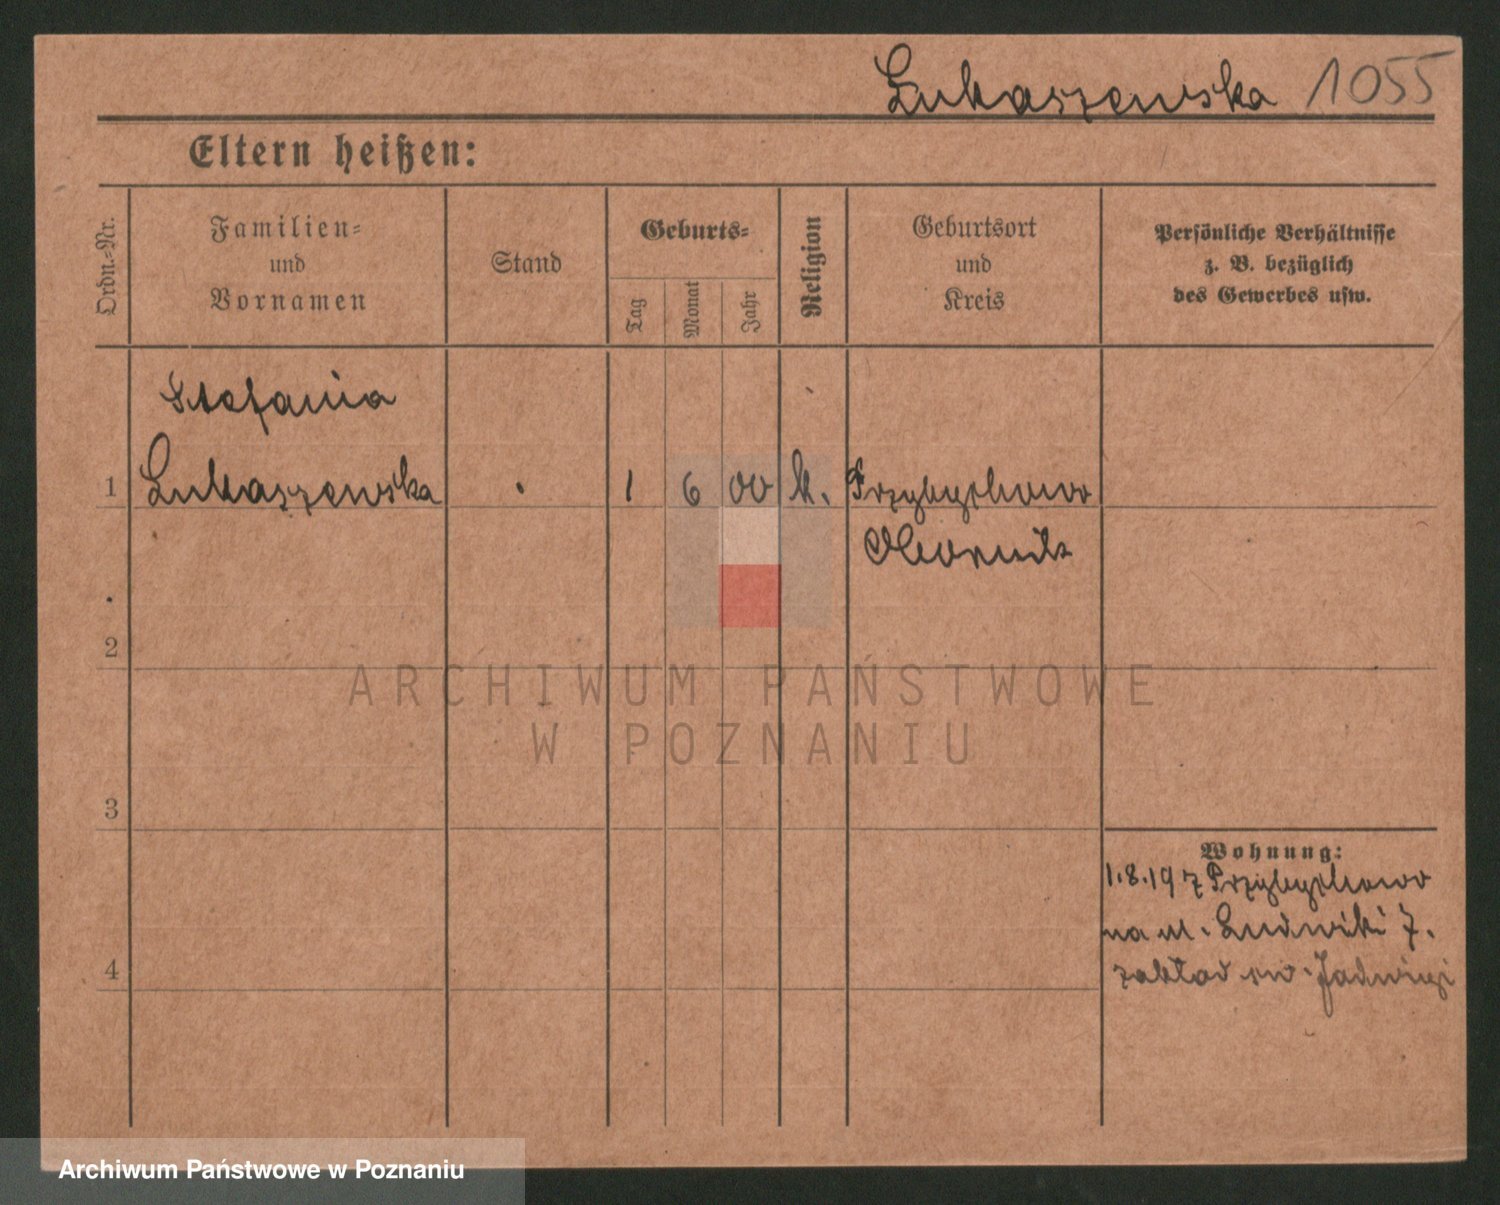 Lukaszewska 1055
Eltern heißen:
Ordn.-Nr.
Familien-
und
Vornamen
Stand
Geburts-
Tag
Monat
Jahr
Religion
Geburtsort
und
Kreis
Persönliche Verhältnisse
z. B. bezüglich
des Gewerbes usw.
Stefania
1 Lukaszewska . 1 6 00 k. Przybychowo
Obornik
2
ARCHIWUM PAŃSTWOWE
W POZNANIU
3
Wohnung:
1.8.19 z Przybychowo
na ul. Ludwiki 7.
4 zakład św. Jadwigi
Archiwum Państwowe w Poznaniu